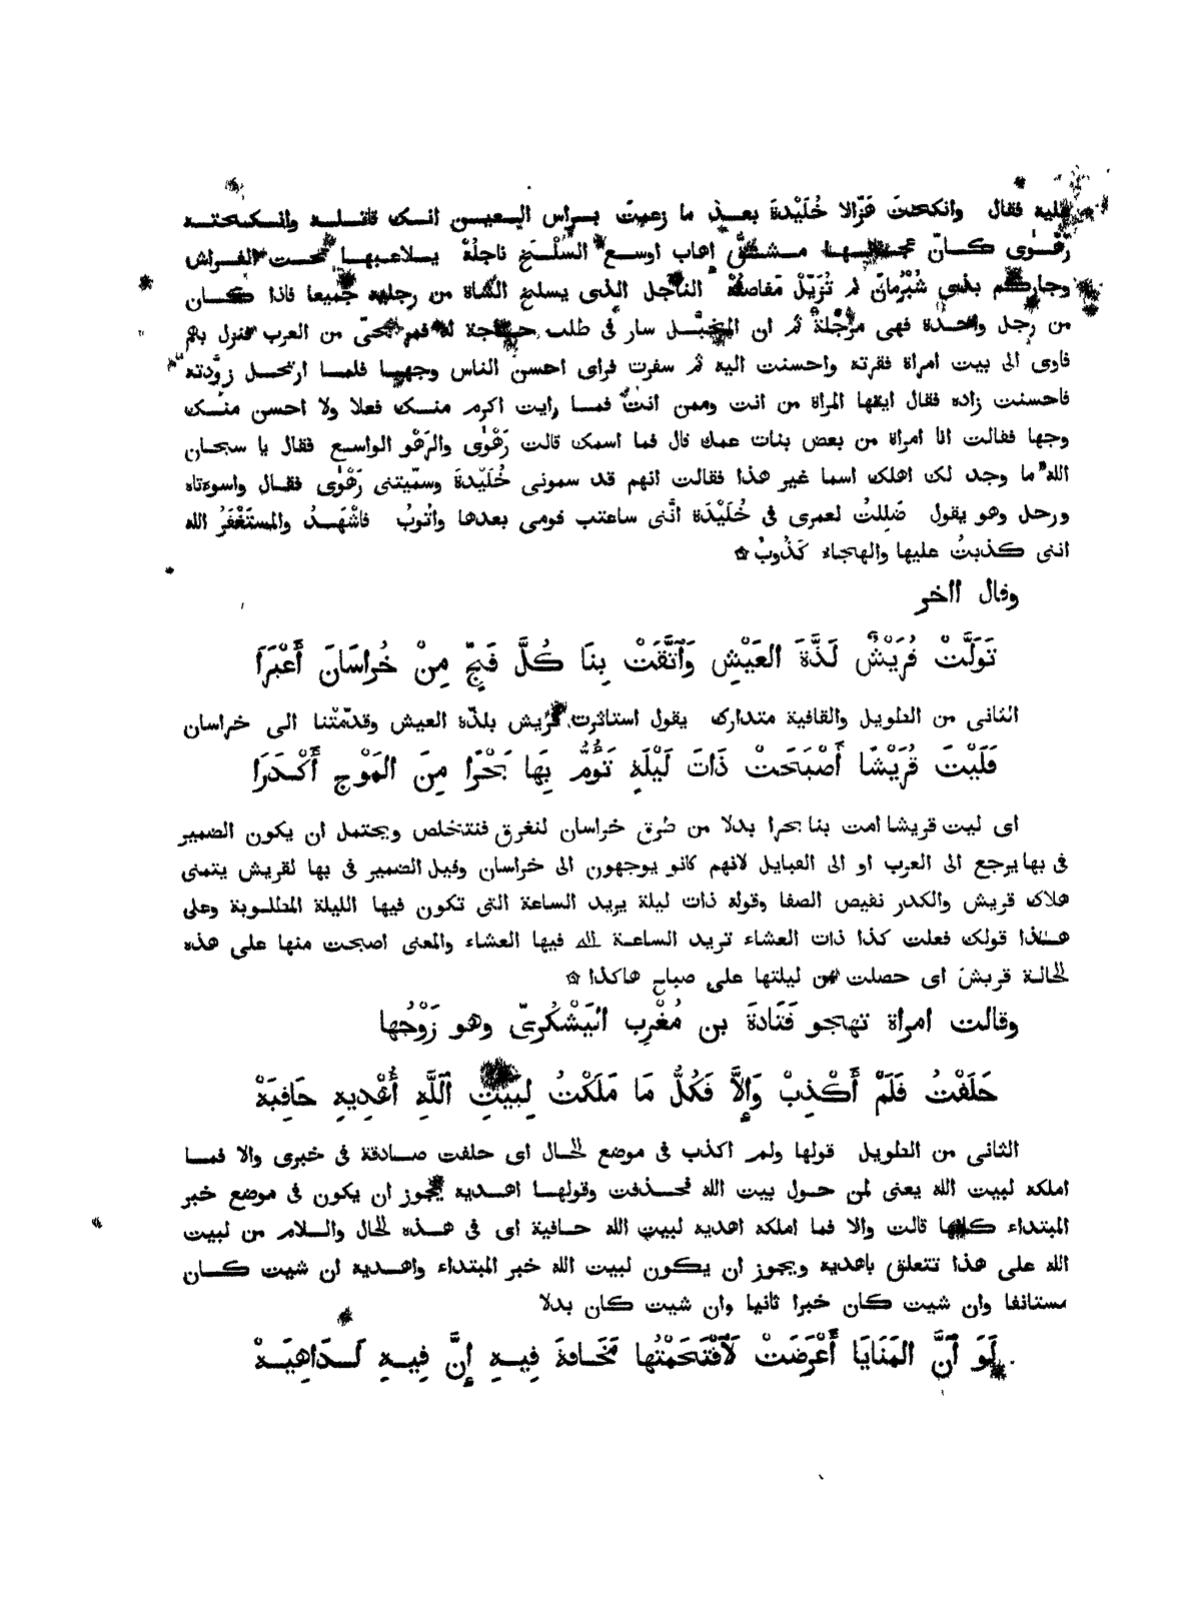 عليه فقال وانكحتَ هَزّالا خُلَيْدةَ بعـد ما زعمتَ بـراس العـين انـك قاتـلـه وانـكـحـتـه
رَهْـوى كـانّ عجـانـهـا مـشـقّ اهاب اوسـع السَّلْـخَ ناجلُهْ يـلاعـبـهـا تحـت الفـراش
وجاركم بذى شُبْرُمانَ لم تُزَيَّلْ مَفاصلُهْ الناجل الذى يسلخ الشاة من رجليه جميعا فاذا كـان
من رجل واحـدة فهى مرجّلة ثم ان المخبّـل سار فى طلب حـاجة له فمر بحىّ من العرب فنزل بهم
فاوى الى بيت امراة فقرته واحسنت اليه ثم سفرت فراى احسن الناس وجهـا فلمـا ارتحـل زوَّدته
فاحسنت زاده فقال ايتها المراة من انت وممن انت فمـا رايت اكرم منـك فعلا ولا احسن منـك
وجها فقالت انا امراة من بعض بنات عمك قال فما اسمك قالت رَهْوٰى والرَهْو الواسـع فقال يا سبحـان
الله ما وجد لك اهلك اسما غير هذا فقالت انهم قد سمونى خُلَيْدةَ وسمّيتنى رَهْوٰى فقـال واسوءتاه
ورحل وهو يقول ضَلِلتُ لعمرى فى خُلَيْدَة انّنى ساعتب قومى بعدها واتُوبُ فاشْهَـدُ والمستَغْفَرُ الله
اننى كذبتُ عليها والهجاء كَذُوبُ ✩
وقال اآخر
تَوَلَّتْ قُرَيْشٌ لَذَّةَ العَيْشِ وَٱتَّقَتْ بِنَا كُلَّ فَجٍّ مِنْ خُراسَانَ أَغْبَرَا
الثانى من الطويل والقافية متدارك يقول استاثرت قريش بلذّة العيش وقدّمَتْنا الـى خراسان
فَلَيْتَ قُرَيْشًا أَصْبَحَتْ ذَاتَ لَيْلَةٍ تَؤُمُّ بِهَا بَحْرًا مِنَ المَوْجِ أَكْـدَرَا
اى ليت قريشا امت بنا بحرا بدلا من طرق خراسان لنغرق فنتخلص ويحتمل ان يكون الضمير
فى بها يرجع الى العرب او الى القبايل لانهم كانو يوجهون الى خراسان وقيل الضمير فى بها لقريش يتمنى
هلاك قريش والكدر نقيص الصفا وقوله ذات ليلة يريد الساعة التى تكون فيها الليلة المطلـوبة وعلى
هـذا قولك فعلت كذا ذات العشاء تريد الساعـة لله فيها العشاء والمعنى اصبحت منها على هذه
الحالـة قريش اى حصلت من ليلتها على صباح هاكذا ✩
وقالت امراة تهجو قَتَادةَ بن مُغْرِب اليَشْكُرىّ وهو زَوْجُها
حَلَفْتُ فَلَمْ أَكْذِبْ وَإِلَّا فَكُلُّ مَا مَلَكْتُ لِبَيْتِ ٱللَّهِ أُهْدِيهِ حَافِيَهْ
الثانى من الطويل قولها ولم اكذب فى موضع الحـال اى حلفت صـادقة فى خبرى والا فمـا
املكه لبيت الله يعنى لمن حـول بيت الله فحـذفت وقولهـا اهـديه يجوز ان يكون فى موضع خبر
المبتداء كانها قالت والا فما املكه اهديه لبيت الله حـافية اى فى هـذه الحال والـلام من لبيت
الله على هذا تتعلق باهديه ويجوز ان يـكون لبيت الله خبر المبتداء واهـديه ان شيت كـان
مستانفا وان شيت كان خبرا ثانيا وان شيت كان بدلا
لَوَ ٱنَّ المَنَايَا أَعْرَضَتْ لَٱقْتَحَمْتُها مَخَـافةَ فِيـهِ إنَّ فِيـهِ لَـدَاهِيَـهْ